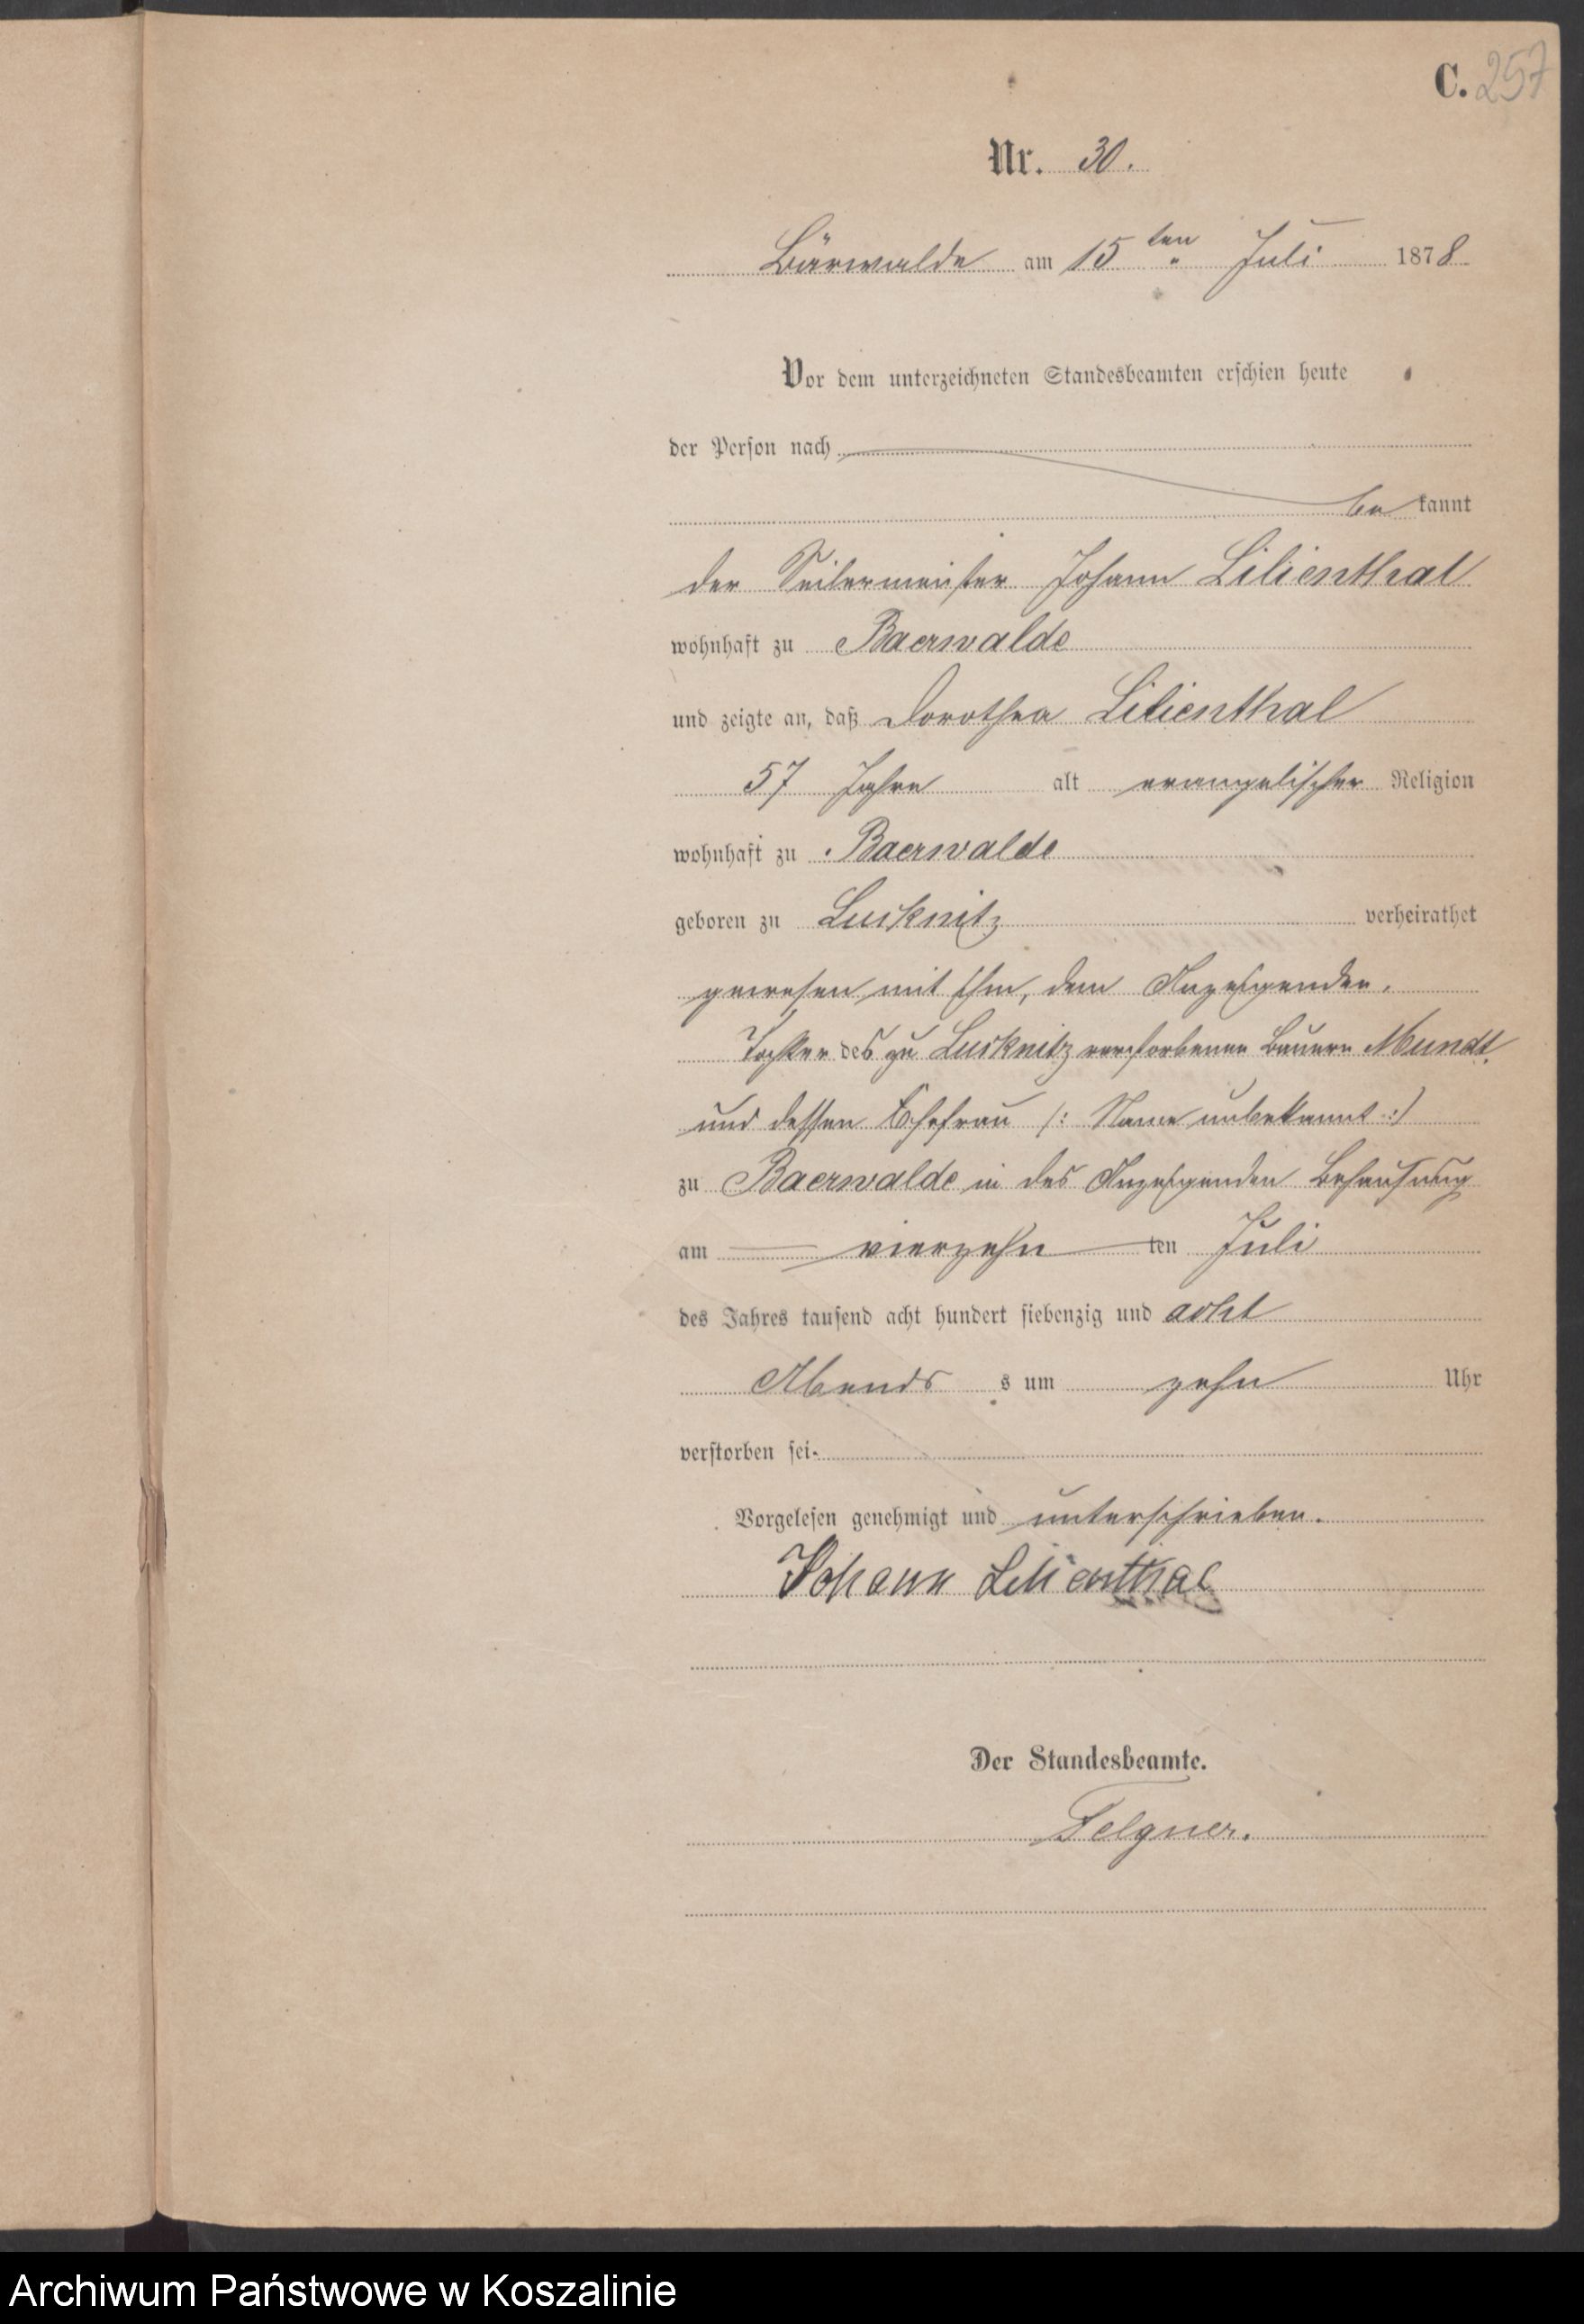 C. 257
Nr. 30.
Bärwalde am 15ten Juli 1878
Vor dem unterzeichneten Standesbeamten erschien heute
der Person nach
bekannt
der Seilermeister Johann Lilienthal
wohnhaft zu Baerwalde
und zeigte an, daß Dorothea Lilienthal
57 Jahre alt evangelischer Religion
wohnhaft zu Baerwalde
geboren zu Lucknitz verheirathet
gewesen mit ihm, dem Anzeigenden.
Tochter des zu Lucknitz verstorbenen Bauern Mundt
und dessen Ehefrau /: Name unbekannt :/
zu Baerwalde in des Anzeigenden Behausung
am vierzehn ten Juli
des Jahres tausend acht hundert siebenzig und acht
Abends s um zehn Uhr
verstorben sei.
Vorgelesen genehmigt und unterschrieben.
Johann Lilienthal
Der Standesbeamte.
Felgner.
Archiwum Państwowe w Koszalinie